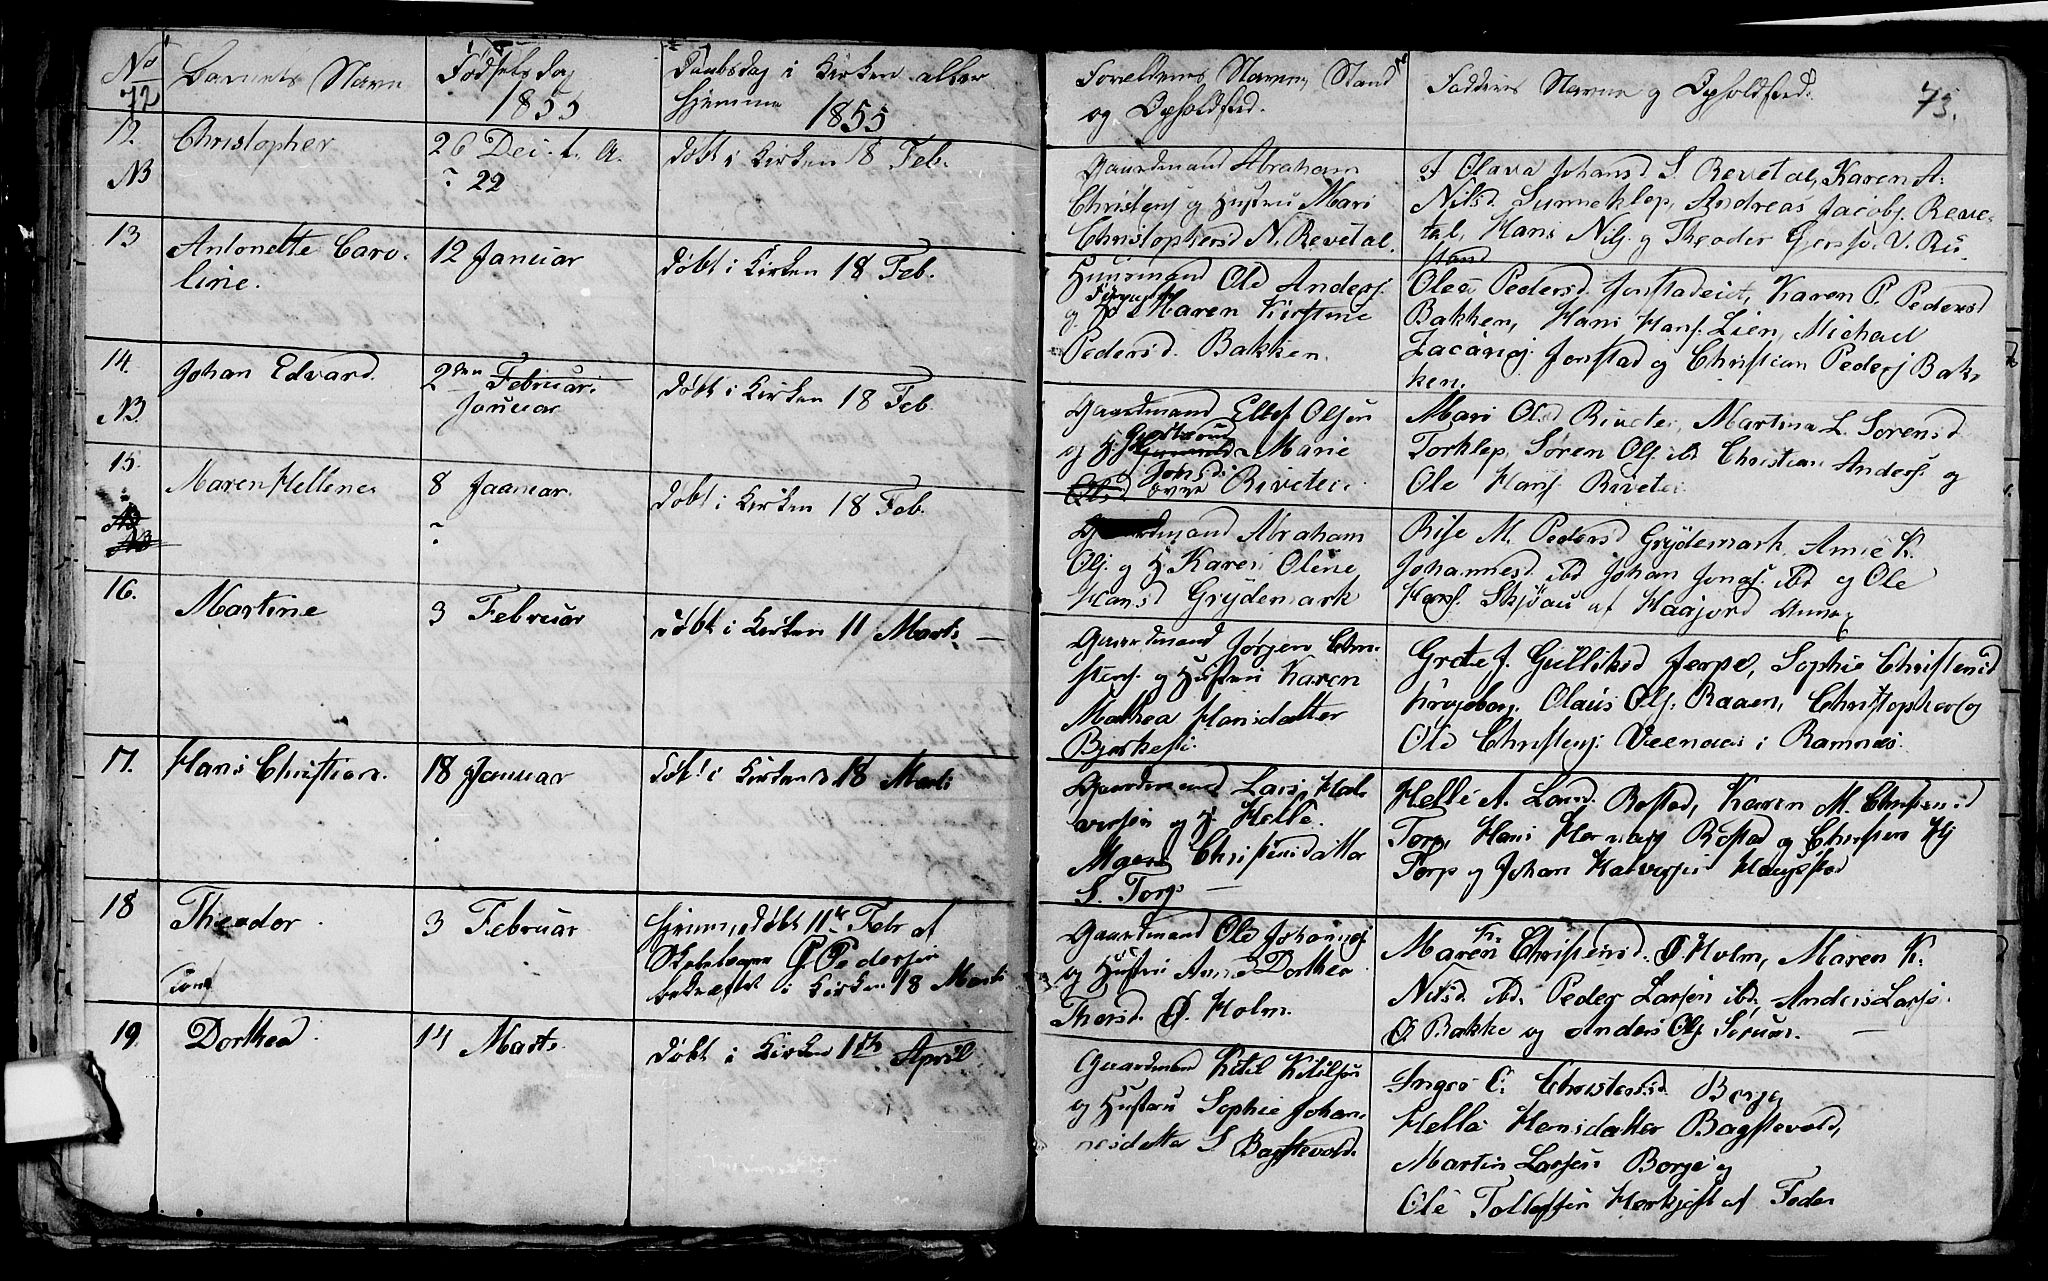 No
72
Barnets Navn
Födselsdag
1855
Daabsdag i Kirken eller
hjemme 1855
Forældrenes Navne, Stand
og Opholdsted.
Faddernes Navne og Opholdsted.
73.
12.
NB
Christopher
26 Dec. f. A.
22
döbt i Kirken 18 Feb.
Gaardmand Abraham
Christens. og Hustru Mari
Christophersd N. Revetal.
Olava Johansd S. Revetal, Karen A.
Nilsd. Sunneklep, Andreas Jacobs. Reve-
tal, Hans Nils. og Theodor V. Ru-
stad
13
Antonette Caro-
line.
12 Januar
döbt i Kirken 18 Feb.
Huusmand Ole Anders.
og Maren Kirstine
Pedersd. Bakken.
Olea Pedersd. Jonstadeiet, Karen P. Pedersd
Bakken, Hans Hans. Lien, Michael
Zacarias. Jonstad og Christian Peders. Bak-
ken.
14.
NB.
Johan Edvard.
2den Februar.
Januar
döbt i Kirken 18 Feb.
Gaardmand Ellef Olsen
og H. Marie
Olsd over Riveteie
Mari Olsd Rivetei, Martina L. Sörensd
Torklep, Sören Ols. ibd Christian Anders. og
Ole Hans. Rivetei
15.
NB
NB
Maren Hellene
8 Jaanuar.
döbt i Kirken 18 Feb.
Gaardmand Abraham
Ols. og H. Karen Oline
Hansd Grydemark
Rise M. Pedersd Grydemark, Anne K.
Johannesd ibd Johan Jonas. ibd og Ole
Hans. Skjöau af Haajord Annex
16.
Martine
3 Februar
döbt i Kirken 11 Marts —
Gaardmand Jörgen Chri-
stens. og Hustru Karen
Mathea Hansdatter
Bjerkesti.
Grete J. Gulliksd Jerpe, Sophie Christensd
Krogsborg. Olaus Ols. Raaen, Christopher og
Ole Christens. Veenaes i Ramnæs.
17.
Hans Christian.
18 Januar
döbt i Kirken 18 Marts
Gaardmand Lars Hal-
versen og H. Helle
Maria Christensdatter
S. Torp —
Helle A. Larsd. Rostad, Karen M. Christensd
Torp, Hans Rostad og Christen
Torp og Johan Halversen Haugstad
18
Theodor
3 Februar
Hjemmedöbt 11te Febr af
Skolelærer P. Pedersen
bekræftet i Kirken 18 Marts
Gaardmand Ole Johannes.
og Hustru Anne Dorthea
Thorsd. Ö. Holm.
Maren K. Christensd. Ö. Holm, Maren K.
Nilsd. ibd. Peder Larsen ibd, Anders Lars.
Ö. Bakke og Anders Ols. —
19.
Dorthea
14 Marts
döbt i Kirken 1ste April.
Gaardmand Kitil Kitilsen
og Hustru Sophie Johan-
nesdatter S. Bagstevold.
Inger C. Christensd. Borge,
Helle Hansdatter Bagstevold,
Martin Larsen Borge og
Ole Tollefsen